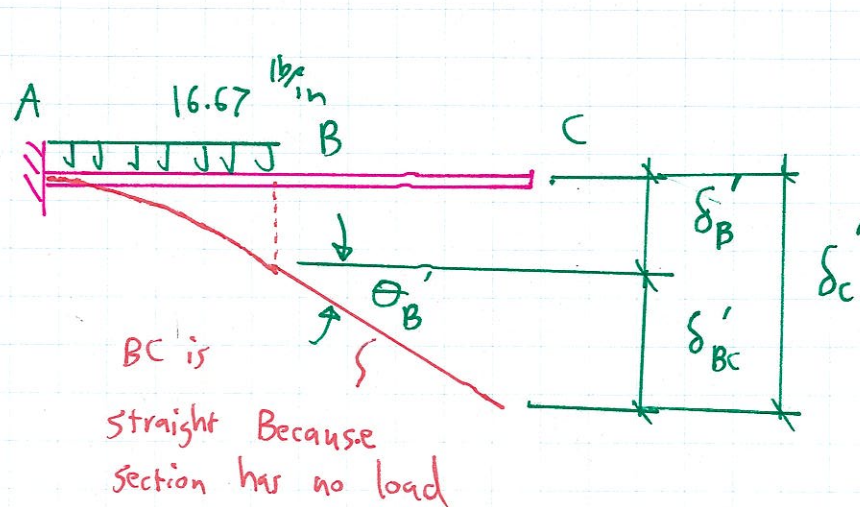 A
16.67 lb/in
B
C
δB'
θB'
δBC'
δC'
BC is
straight Because
section has no load